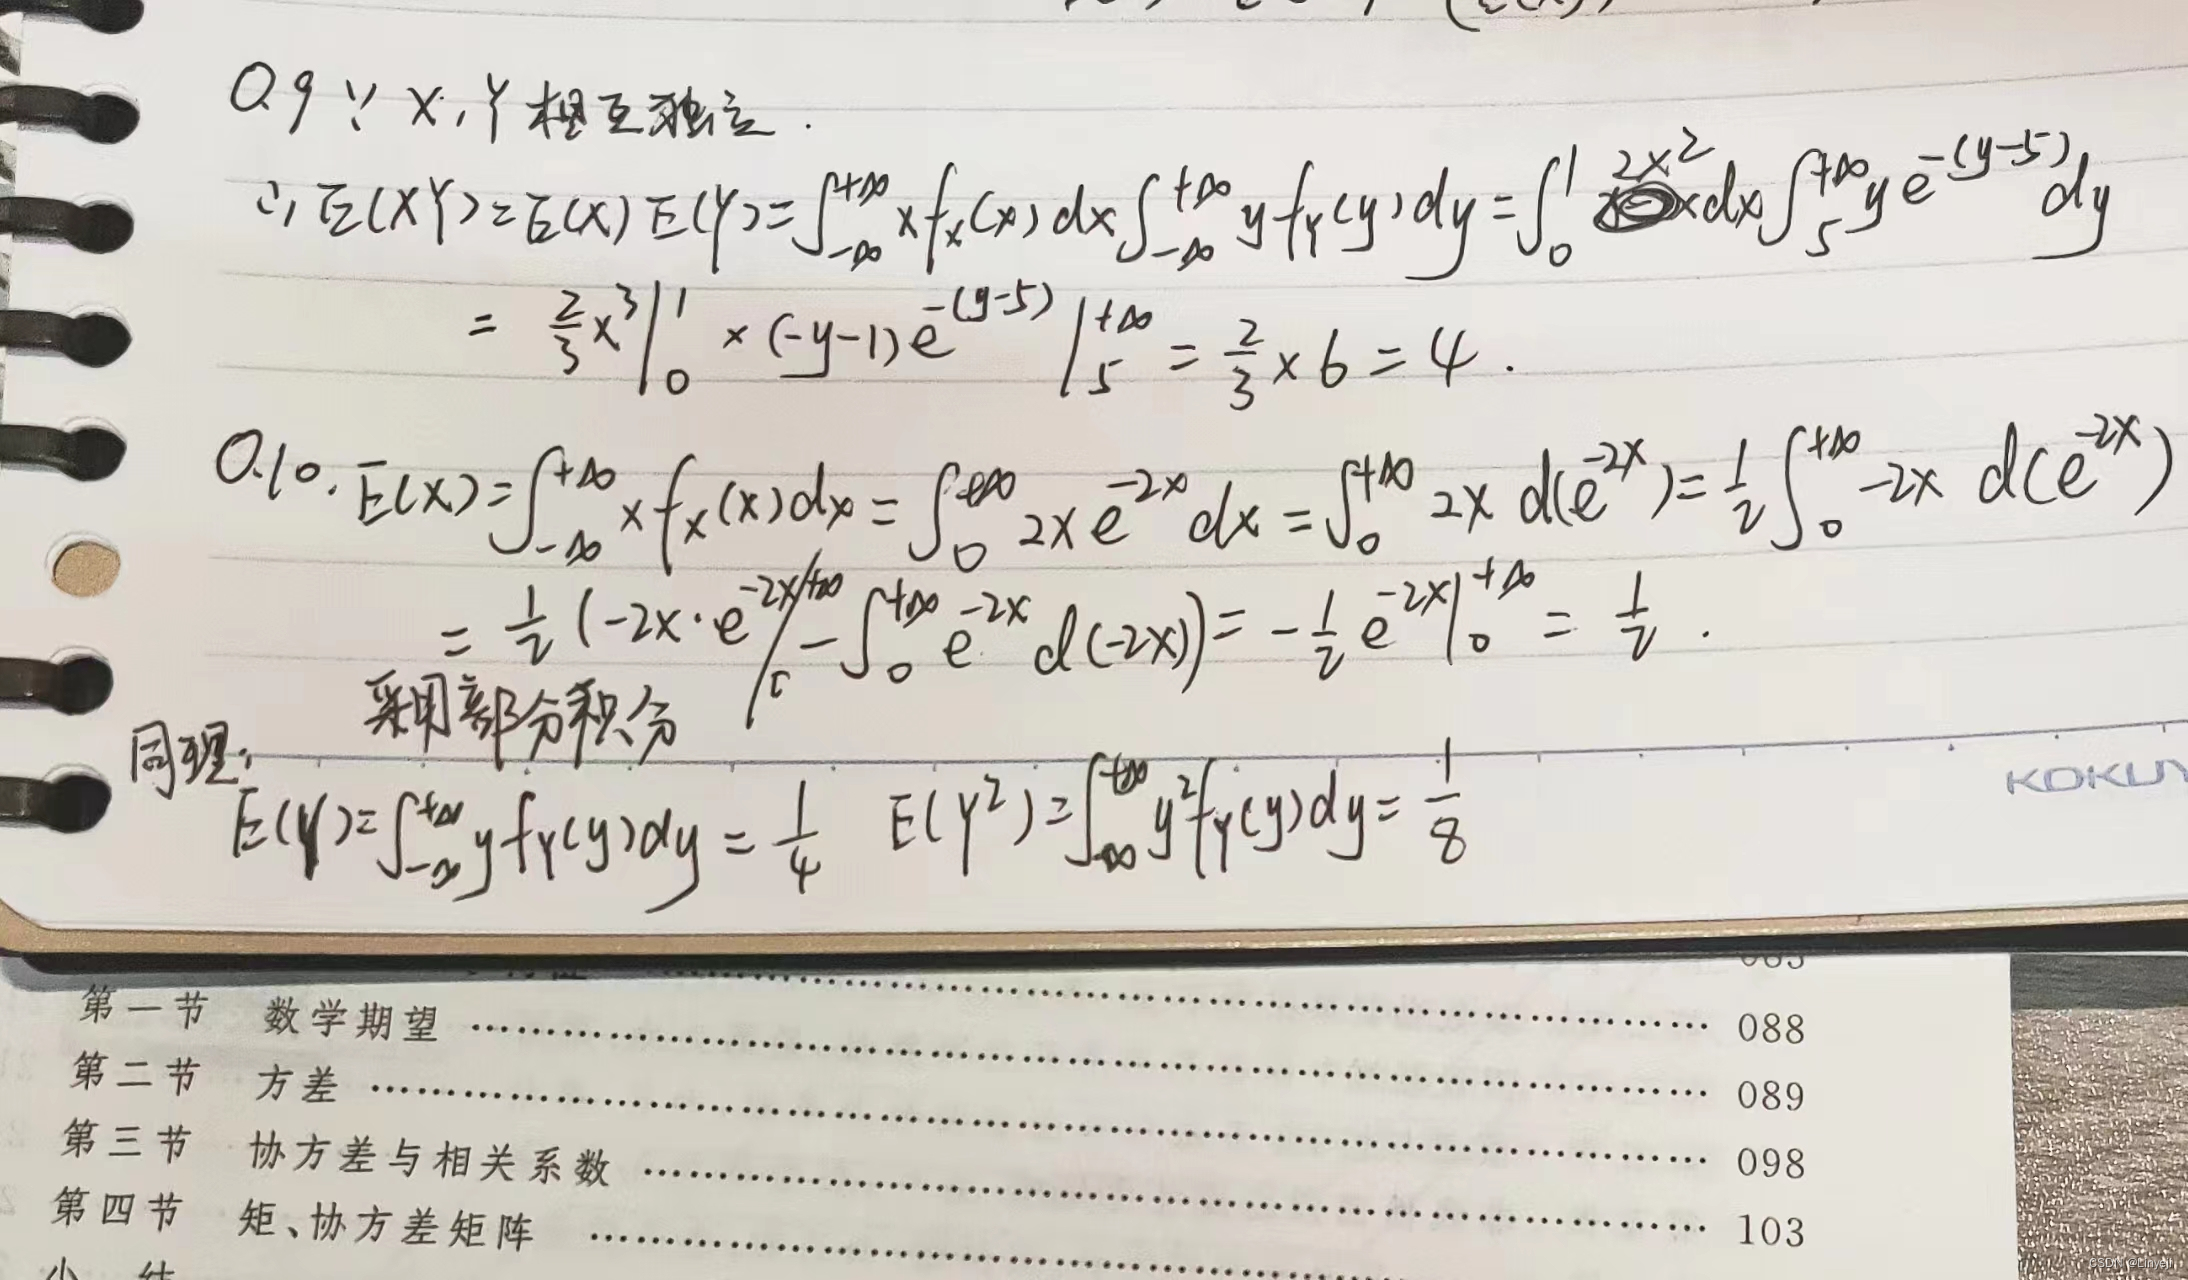 Q.9 ∵ X,Y 相互独立.
∴ E(XY)=E(X)E(Y)=∫_{-∞}^{+∞} x f_X(x) dx ∫_{-∞}^{+∞} y f_Y(y) dy = ∫_0^1 2x^2 dx ∫_5^{+∞} y e^{-(y-5)} dy
= 2/3 x^3 |_0^1 × (-y-1) e^{-(y-5)} |_5^{+∞} = 2/3 × 6 = 4.
Q.10. E(X)=∫_{-∞}^{+∞} x f_X(x) dx = ∫_0^{+∞} 2x e^{-2x} dx = ∫_0^{+∞} 2x d(e^{-2x}) = 1/2 ∫_0^{+∞} -2x d(e^{-2x})
= 1/2 (-2x·e^{-2x} |_0^{+∞} - ∫_0^{+∞} e^{-2x} d(-2x)) = -1/2 e^{-2x} |_0^{+∞} = 1/2.
采用部分积分
同理:
E(Y)=∫_{-∞}^{+∞} y f_Y(y) dy = 1/4 E(Y^2)=∫_{-∞}^{+∞} y^2 f_Y(y) dy = 1/8
KOKUY
第一节 数学期望 …… 088
第二节 方差 …… 089
第三节 协方差与相关系数 …… 098
第四节 矩、协方差矩阵 …… 103
CSDN @Linyeji